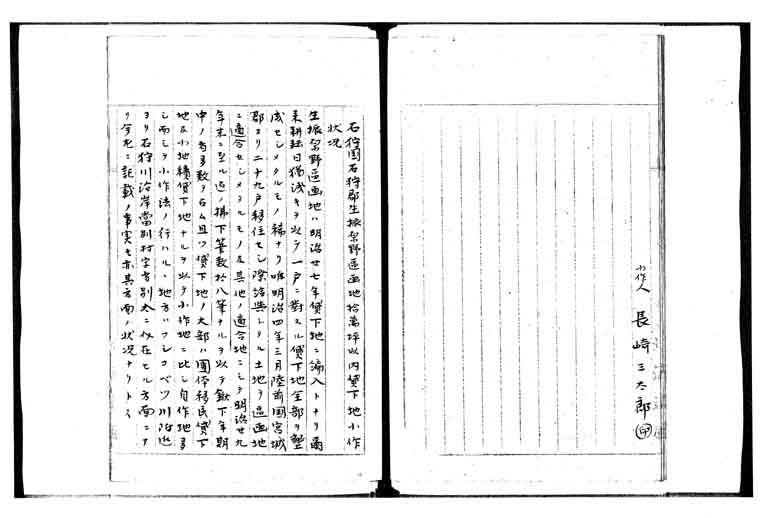 小作人 長崎三太郎 ㊞
石狩国石狩郡生振原野区画地拾萬坪以内貸下地小作
状況
生振原野区画地ハ明治廿七年貸下地ニ編入トナリ爾
来耕耘日猶浅キヲ以テ一戸ニ對スル貸下地全部ヲ墾
成セシメタルモノ稀ナリ唯明治四年三月陸前国宮城
郡ヨリ二十九戸移住セシ際給與シタル土地ヲ区画地
ニ適合セシメタルモノ及其他ノ適合地ニシテ明治廿九
年末ニ至ル迄ノ拂下筆数於八筆ナルヲ以テ鍬下年期
中ノ者多数ヲ占ム且ツ貸下地ノ大部ハ團体移民貸下
地及小地積貸下地ナルヲ以テ小作地ニ比シ自作地多
シ而シテ小作法ノ行ハルヽ地方ハワシコベツ川附近
ヨリ石狩川沿岸當別村字当別太ニ似在セル方面ニア
リ今先ニ記載ノ事実モ亦其方面ノ状況ナリトス